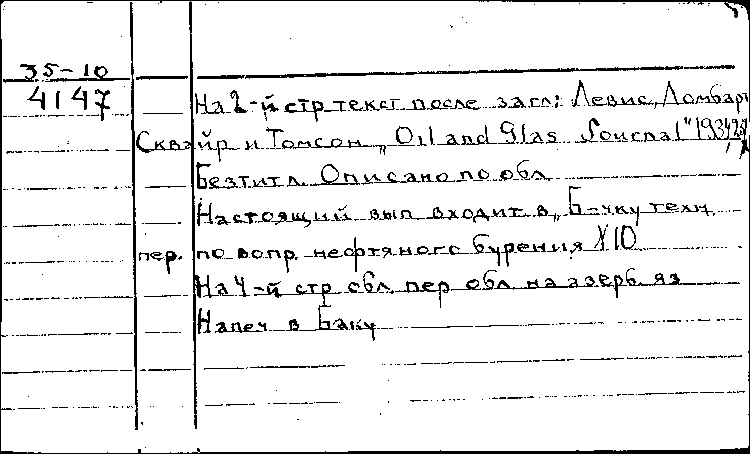 35-10
4147
На 2-й стр текст после загл: Левис, Ломбар
Сквайр и Томсон „Oil and Glas Journal" 1934
Без тит л. Описано по обл
Настоящий вып входит в „Б-чку техн.
пер. по вопр. нефтяного бурения" №10
На 4-й стр обл. пер обл на азерб. яз
Напеч в Баку